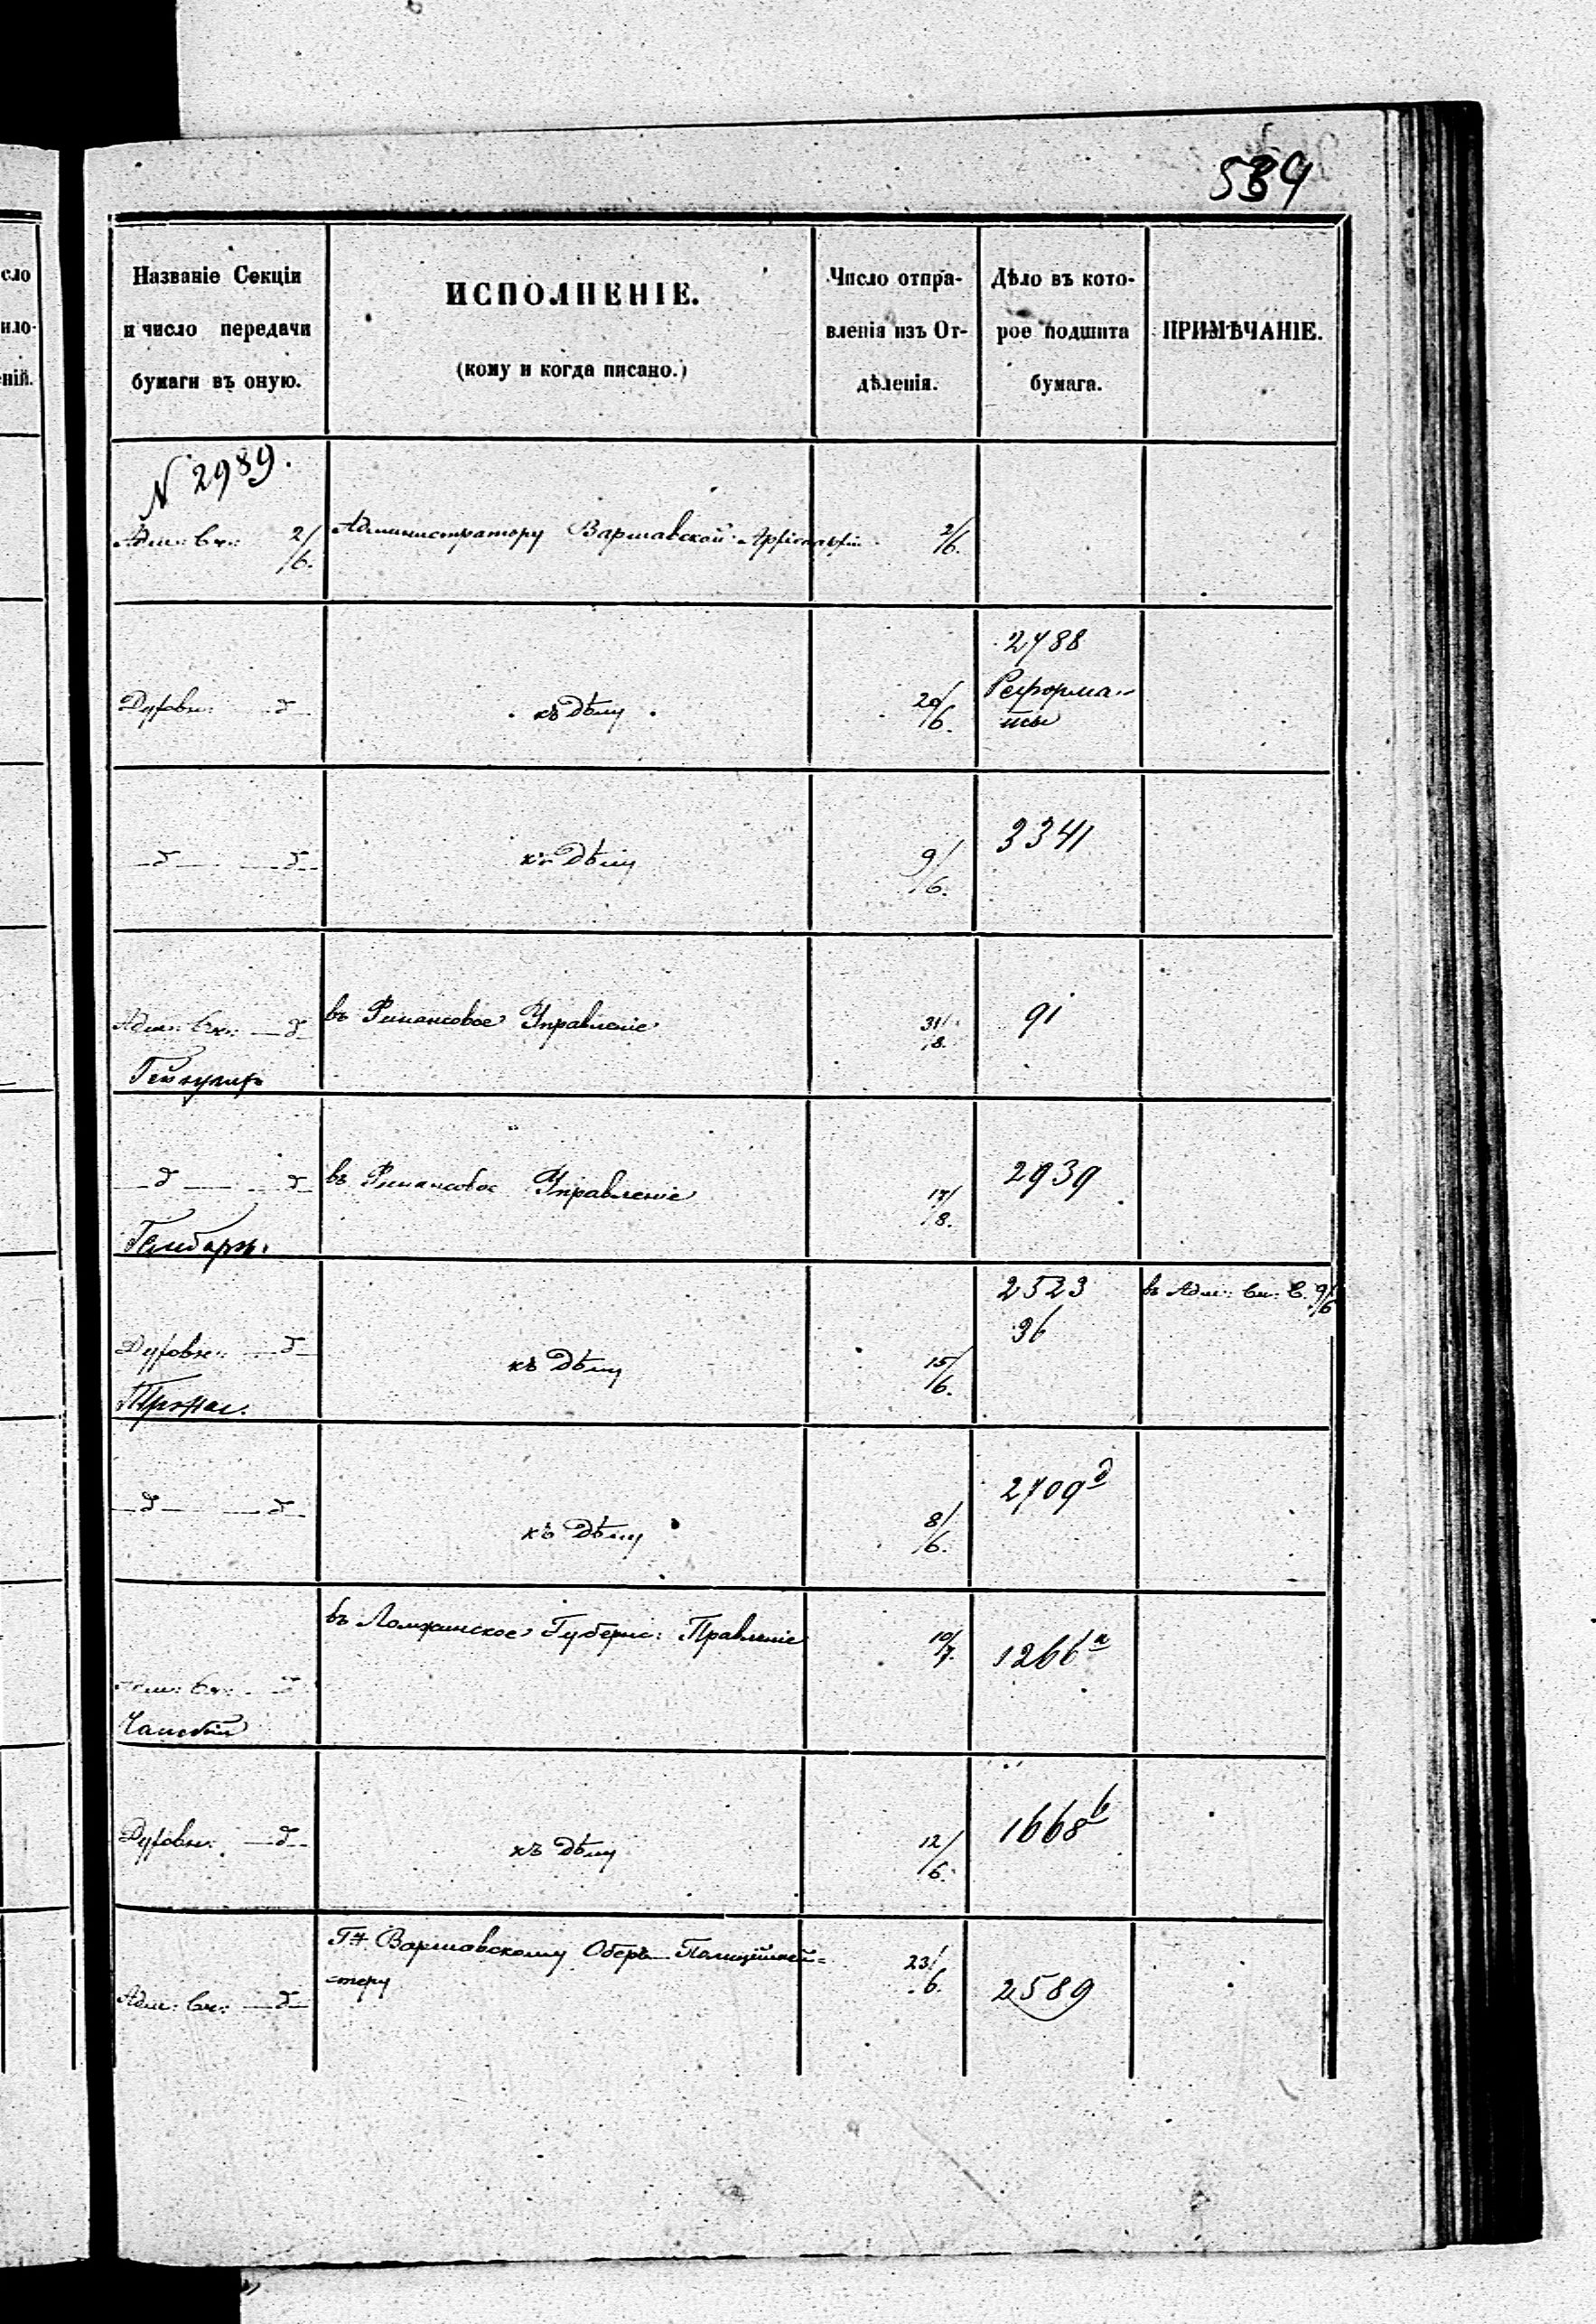 539
сло
ило-
ній.
Названіе Секціи
и число передачи
бумаги въ оную.
ИСПОЛНЕНІЕ.
(кому и когда писано.)
Число отпра-
вленія изъ От-
дѣленія.
Дѣло въ кото-
рое подшита
бумага.
ПРИМѢЧАНІЕ.
N 2989.
Адм: Ин: 2/6.
Администратору Варшавской Архіепархіи
2/6.
Духовн: д
къ Дѣлу
20/6.
2788
Реформа-
ты
д д
къ Дѣлу
9/6.
3341
Адм: Ин: д
въ Финансовое Управленіе
31/8.
91
д д
въ Финансовое Управленіе
17/8.
2939
Гембарж.
Духовн: д
къ Дѣлу
15/6.
2523
36
въ Адм: Ин: С. 9/6
д д
къ Дѣлу
8/6.
2709 д
въ Ломжинское Губернс: Правленіе
10/7.
1266 а
Адм: Ин: д
Духовн: д
къ Дѣлу
12/6.
1668 b
Гну Варшавскому Оберъ-Полиціймей=
=стеру
23/6.
2589
Адм: Ин: д